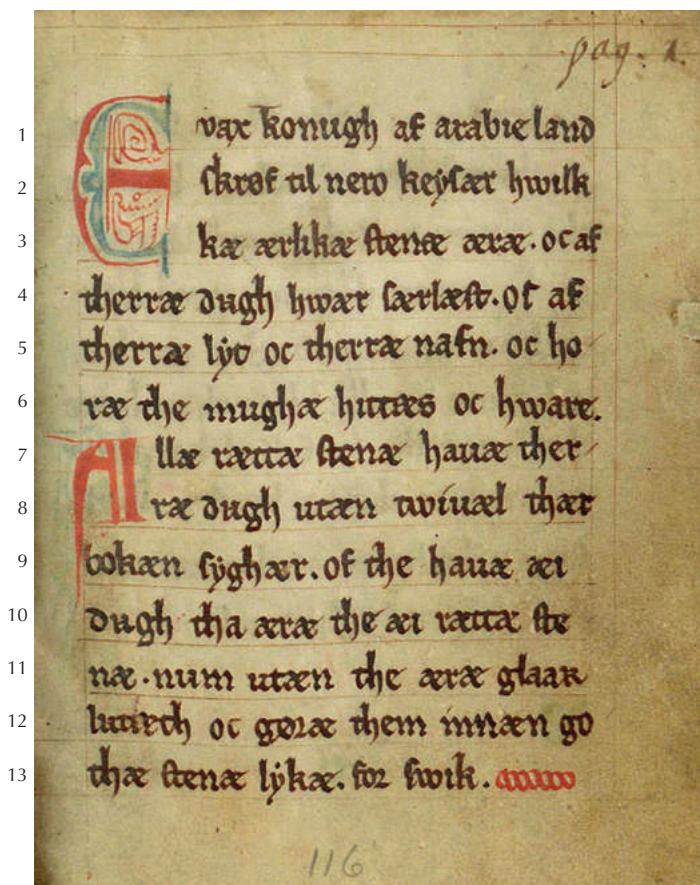 pag. 1.
1 Evax konugh af arabie land
2 skrøf til nero keysær hwilk
3 kæ ærlikæ stenæ æræ. oc af
4 therræ dugh hwær særlæst. oc af
5 therræ lyt oc therræ nafn. oc ho
6 ræ the mughæ hittæs oc hware.
7 Allæ rættæ stenæ hauæ ther
8 ræ dugh utæn twiuæl thær
9 bokæn syghær. of the hauæ æi
10 dugh tha æræ the æi rættæ ste
11 næ. num utæn the æræ glaar
12 luttæth oc gøræ them innæn go
13 thæ stenæ lykæ. for swik.
116